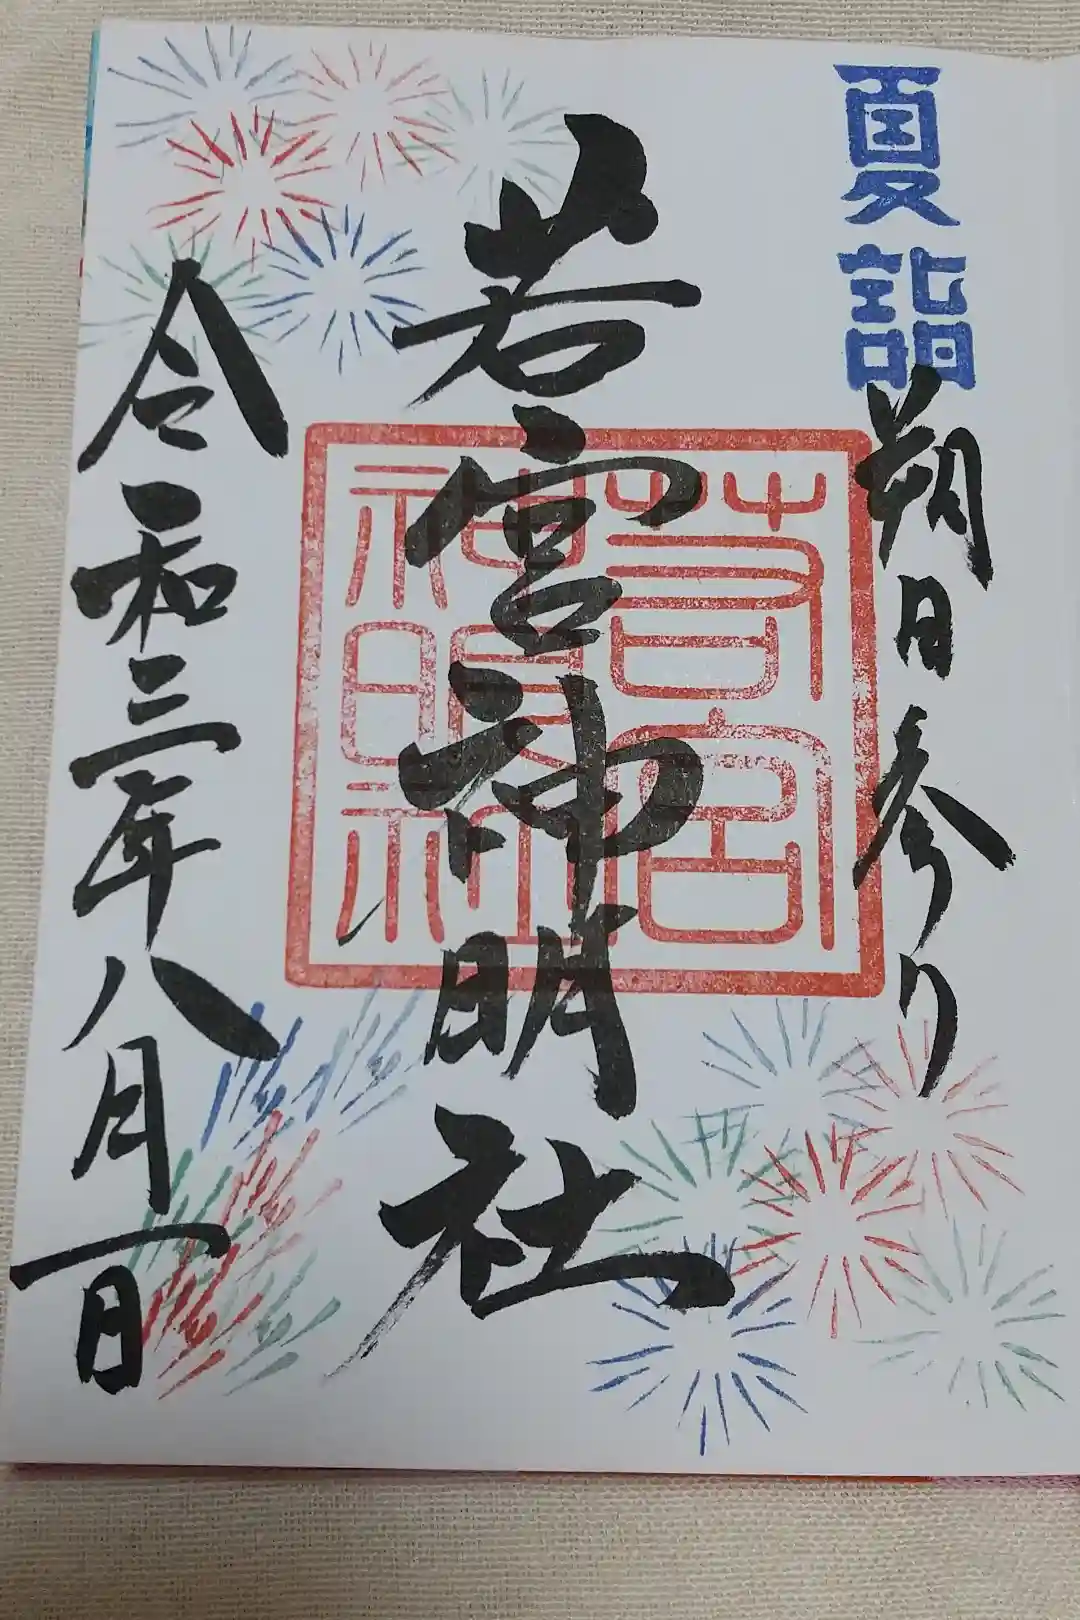 夏詣
朔日参り
若宮神明社
若宮
神明社
令和三年八月一日